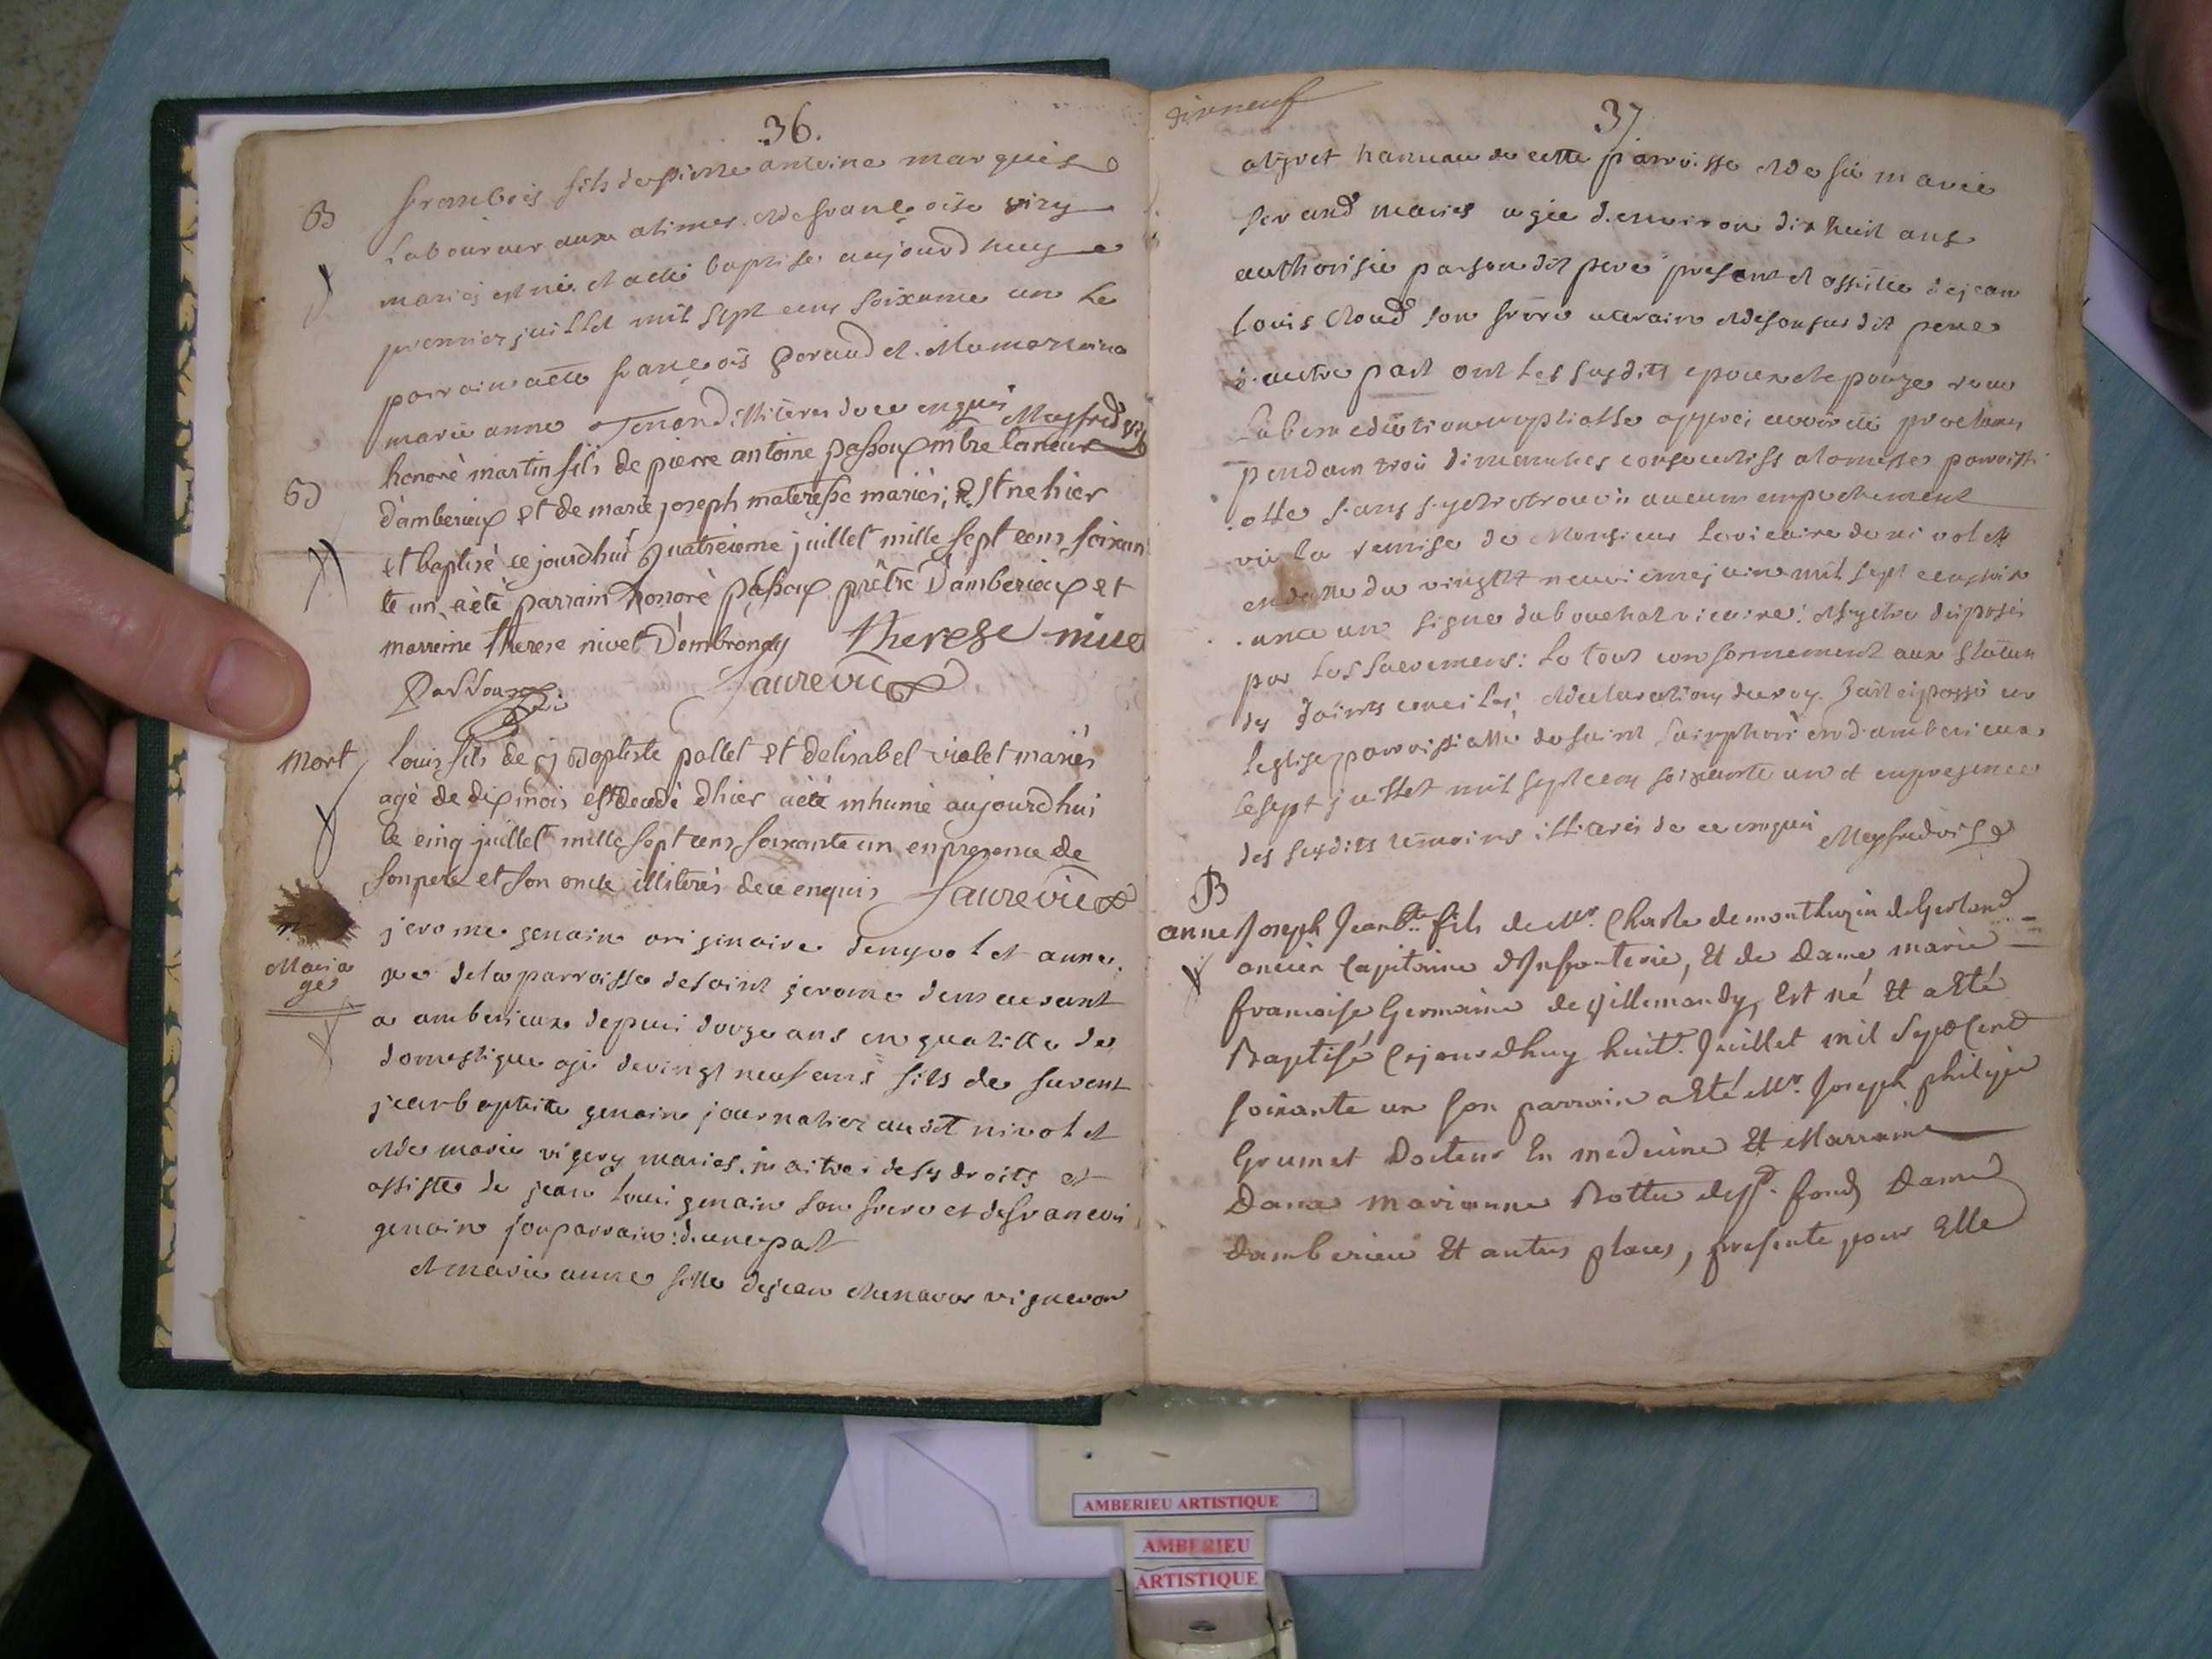 36.
B
françois fils de pierre antoine marquis
Laboureur aux alimes et de françoise viry
mariés est né et a été baptisé aujourd huy
premier juillet mil sept cens soixante un Le
parrain a été françois Geraud et La marraine
marie anne Tenand illiteres de ce enquis
B
honoré martin fils de pierre antoine passoux mtre taneur
d'amberieux et de marie joseph materesse mariés, Est ne hier
et baptisé ce jourdhui quatreieme juillet mille sept cens soixan
te un, a été parrain honoré passoux prêtre d'amberieux et
marreine therese nivet D'ambronay Therese nive
Passoux
faurevieux
Mort
louis fils de j Baptiste pallet et delisabet violet mariés
agé de dix mois est decedé dhier a été inhumé aujourdhui
le cinq juillet mille sept cens soixante un en presence de
son pere et son oncle illiterés de ce enquis faurevieux
Maria
ge
jerome genain originaire de nyvolet anne
xe de la parroisse de saint jerome demeurant
a amberieux depuis douze ans en qualitte de
domestique agé de vingt neuf ans fils de fu vent
jean baptiste genain journalier au dit nivolet
et de marie vigery maries. maitre de ses droits et
assisté de jean louis genain son frere et de françois
genain son parrain: d'une part
et marie anne fille de jean vigneron
dixneuf
37
hameau de cette parroisse et de fue marie
ferand maries agée d'environ dix huit ans
authorisée par son dit pere present et assistée de jean
Louis son frere uterain et de son sus dit pere
d'autre part ont Les susdits epoux et epouze recu
La benediction nuptialle apprès avoir été proclamés
pendant trois dimanches consecutifs a la messe parroissi
alle sans s'y etre trouvé aucun empechement
vu la remise de Monsieur Le vicaire de nivolet
en datte du vingtt neuviemejuin mil sept cens soix
ante un signé dubouchat vicaire: et s'y etre disposés
par Les sacremens: Le tout conformement aux statuts
des saints conciles, et declarations du roy. fait et passé en
leglise parroissialle de saint simphorien d'amberieux
le sept juillet mil sept cens soixante un et en presence
des susdits temoins illiterés de ce enquis
B
anne Joseph Jean Bte fils de Mr. Charle de montluzin de Gerland
ancien Capitaine d'Infanterie, Et de Dame marie
francoise Germaine de Villemandy, Est né Et a Eté
Baptisé Cejourdhuy huit. Juillet mil Sept Cent
soixante un son parrain a Eté Mr. Joseph philipe
Grumet Docteur En medecine Et Marraine
Dame marianne Dame
Damberieu Et autres places, presente pour Elle
AMBERIEU ARTISTIQUE
AMBERIEU
ARTISTIQUE